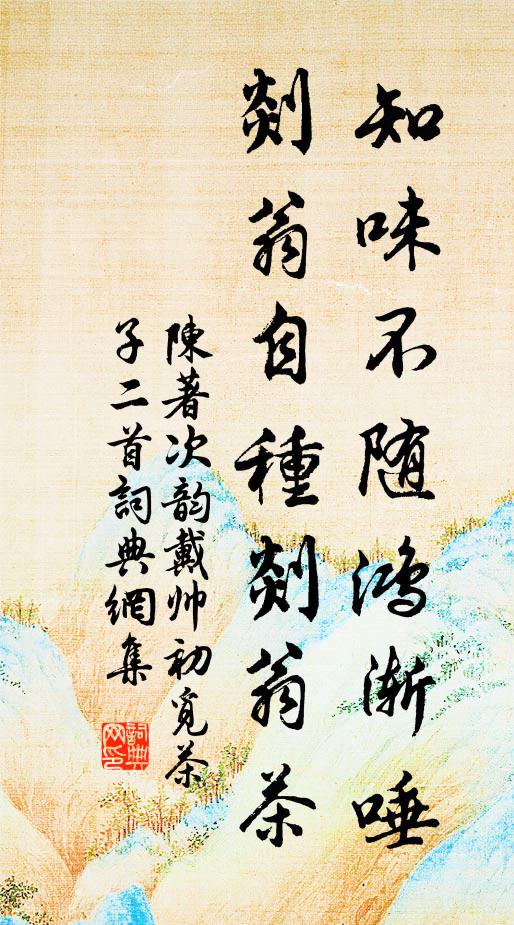 知味不随鸿渐唾
剡翁自種剡翁茶
陳著次韵戴帅初觅茶
子二首詞典網集
詞典网印